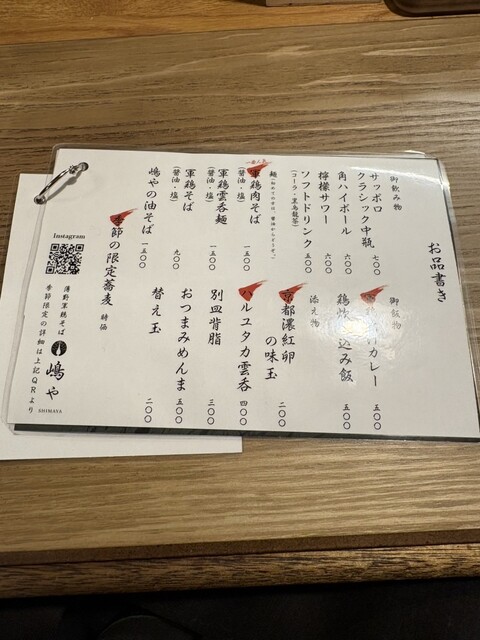 お品書き
御飲み物
サッポロ
クラシック中瓶 七〇〇
角ハイボール 六〇〇
檸檬サワー 六〇〇
ソフトドリンク 五〇〇
(コーラ・黒烏龍茶)
麺
一番人気
軍鶏肉そば 一五〇〇
(醤油・塩)
軍鶏雲呑麺 一五〇〇
(醤油・塩)
軍鶏そば 九〇〇
(醤油・塩)
嶋やの油そば 一五〇〇
季節の限定蕎麦 時価
御飯物
カレー 五〇〇
込み飯 五〇〇
添え物
京都濃紅卵
の味玉 二〇〇
ハルユタカ雲呑 四〇〇
別皿背脂 三〇〇
おつまみめんま 五〇〇
替え玉 二〇〇
Instagram
薄野軍鶏そば
嶋や
SHIMAYA
季節限定の詳細は上記QRより